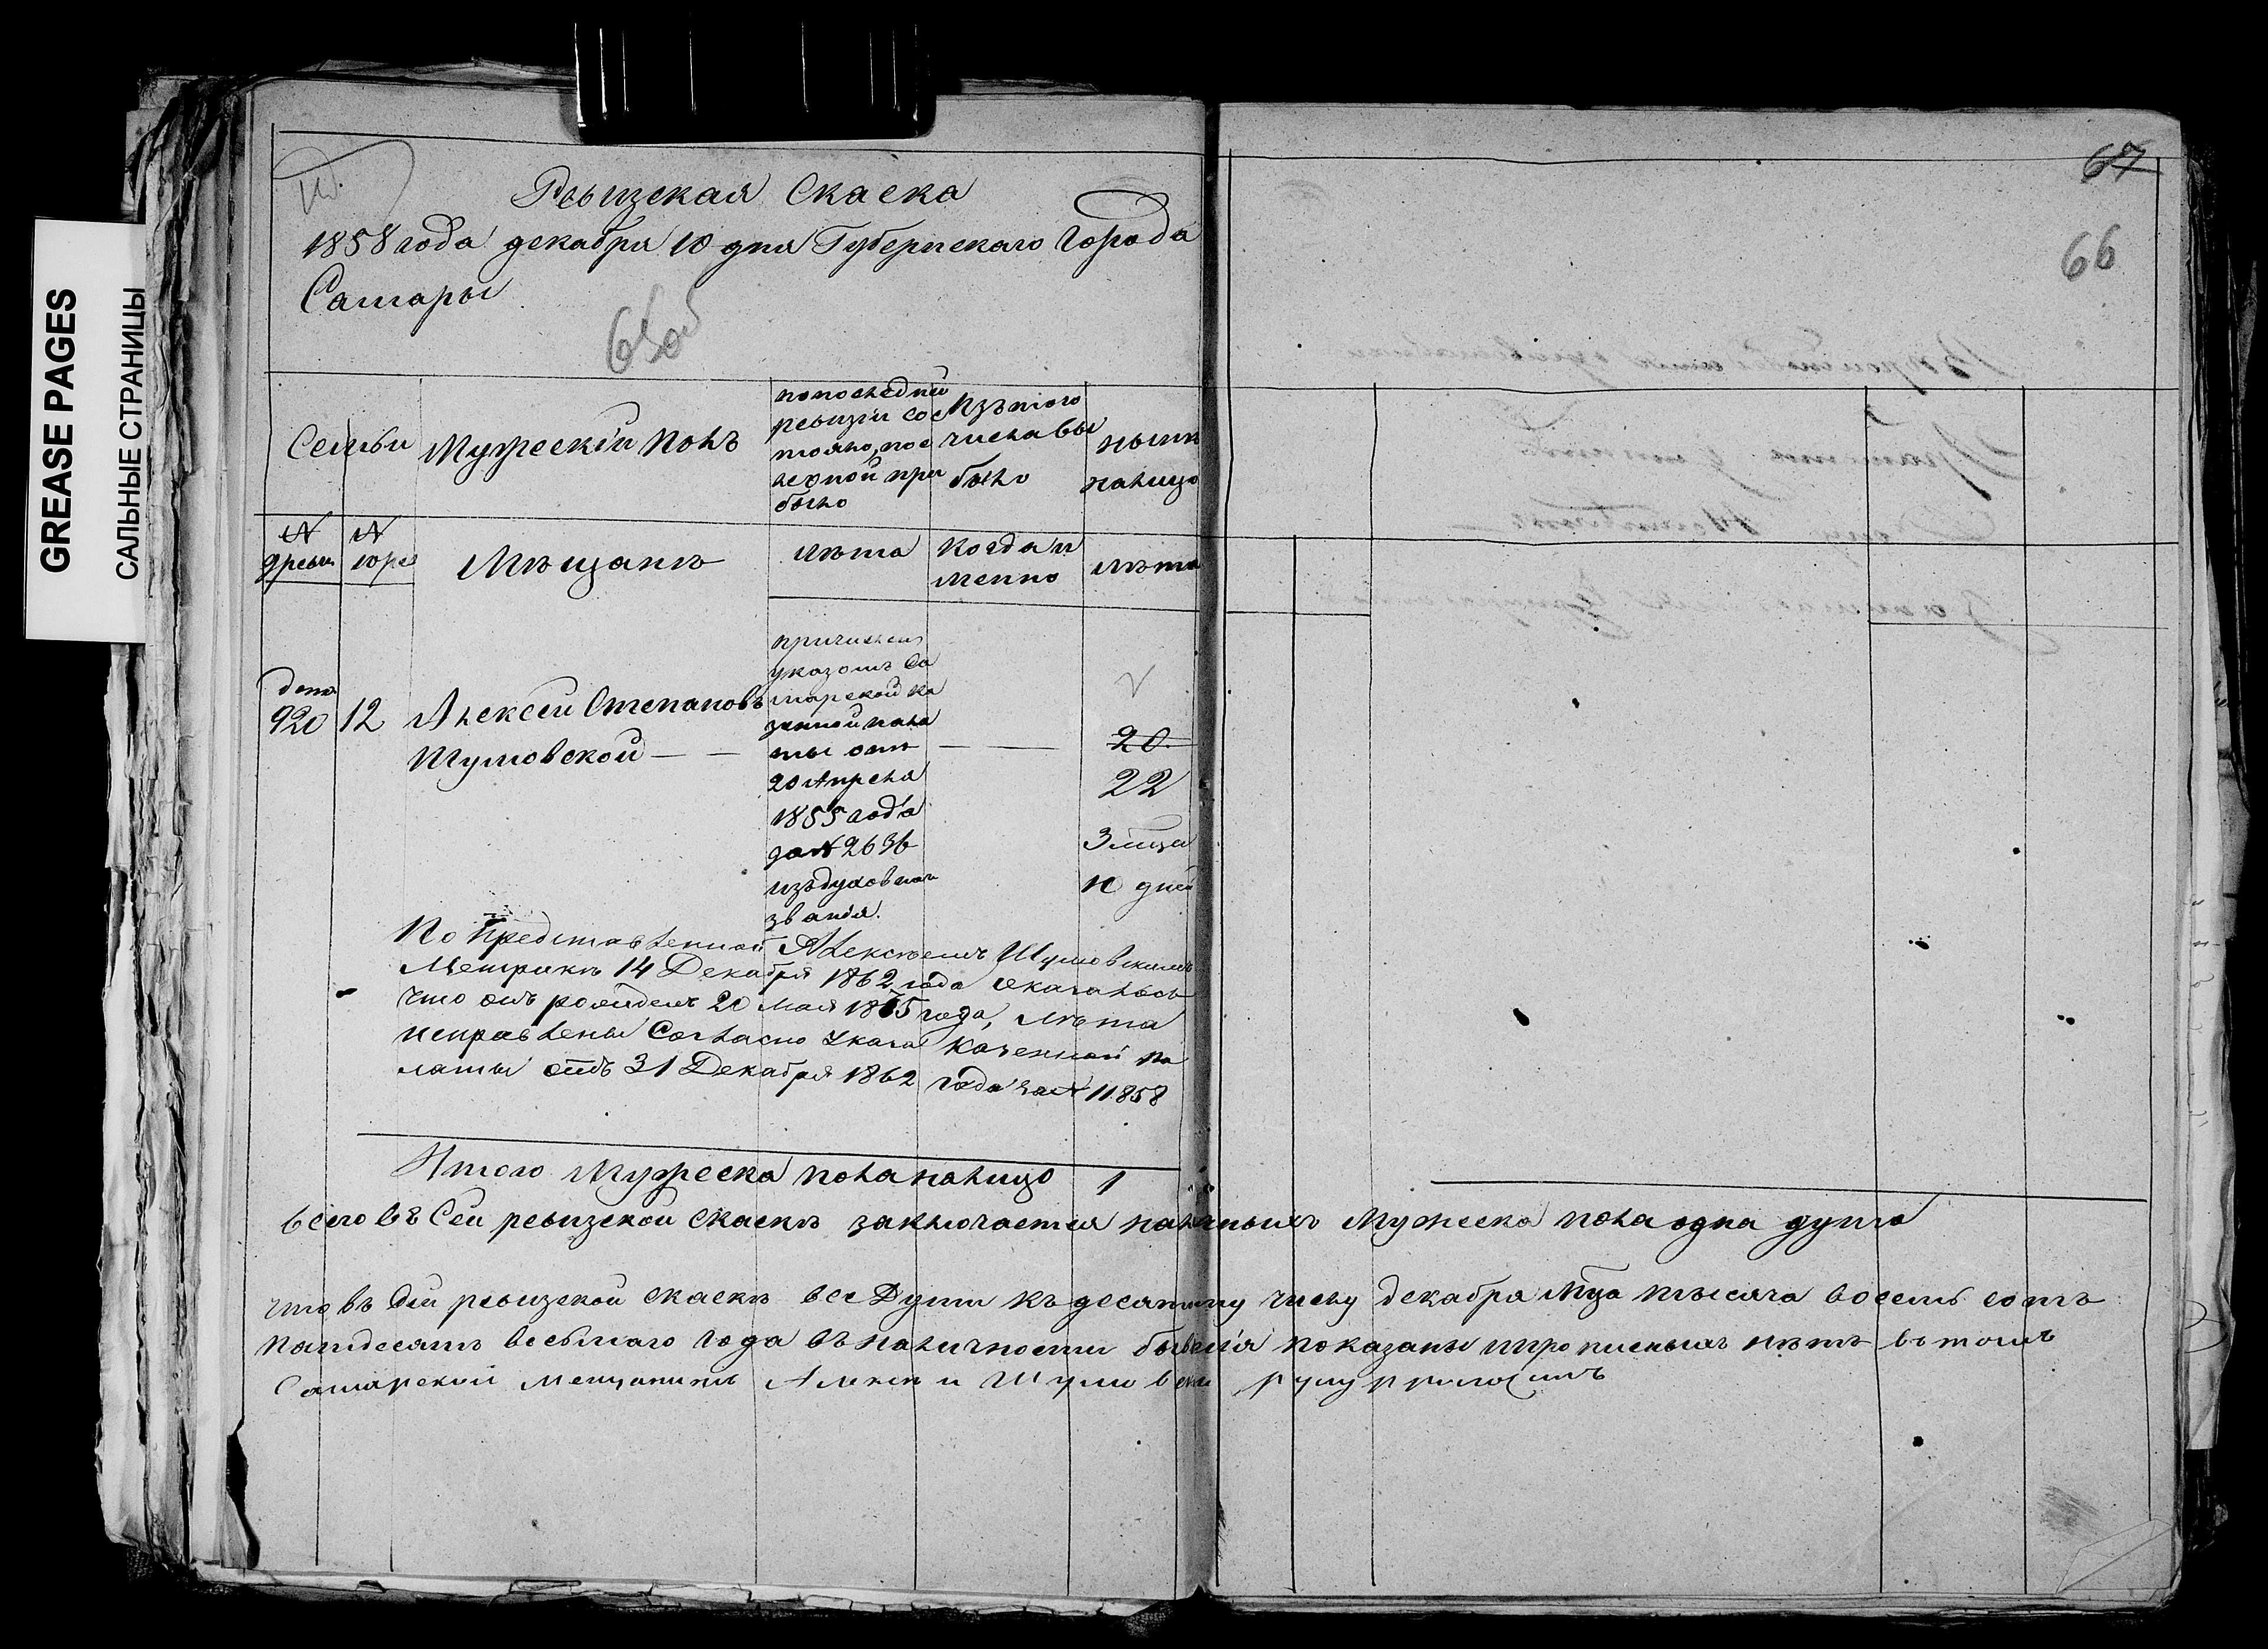 GREASE PAGES
САЛЬНЫЕ СТРАНИЦЫ
67
66
Ревизская Скаска
1858 года декабря 10 дня Губернскаго Города
Самары
65об
Семьи
Мужескій полъ
попоследней
ревизіи сос
тояло, пос
леоной при
было
Изътого
числа вы
было
ныне
налицо
№
древн
№
Мѣщанъ
Лѣта
Когда и
менно
Лѣта
допол
920
12
Алексей Степановъ
Шумовской
причислен
указомъ Са
марской Ка
зенной пала
ты отъ
20 Апреля
1855 года
за № 2636
изъдуховнаго
званія.
20
22
3 мца
10 дней
По представленной Алексѣемъ Шумовскимъ
Метрикѣ 14 Декабря 1862 года оказалось
что онъ рожденъ 20 мая 1835 года, лѣта
исправлены Согласно Указа Казенной па
латы отъ 31 Декабря 1862 года за № 11858
Итого Мужеска пола налицо 1
всего въ Сей ревизской скаскѣ заключается наличныхъ Мужеска пола одна душа
что въ Сей ревизской скаскѣ все Души къ десятому числу декабря Мца тысяча восемь сотъ
пятдесятъ восьмаго года въ наличности бывшія показаны ипрописныхъ нѣтъ въ томъ
Самарской мещанинъ Алексѣй Шумовской руку приложилъ